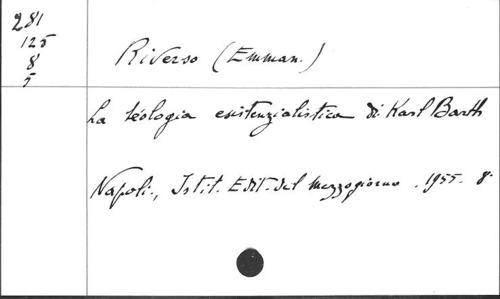 281
125
8
5
Riverso (Emman.)
La teologia esistenzialistica di Karl Barth
Napoli., Istit. Edit. del mezzogiorno . 1955. 8.